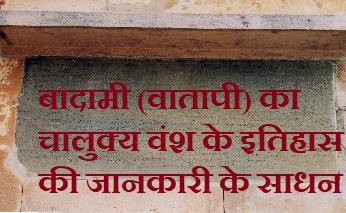 बादामी (वातापी) का
चालुक्य वंश के इतिहास
की जानकारी के साधन